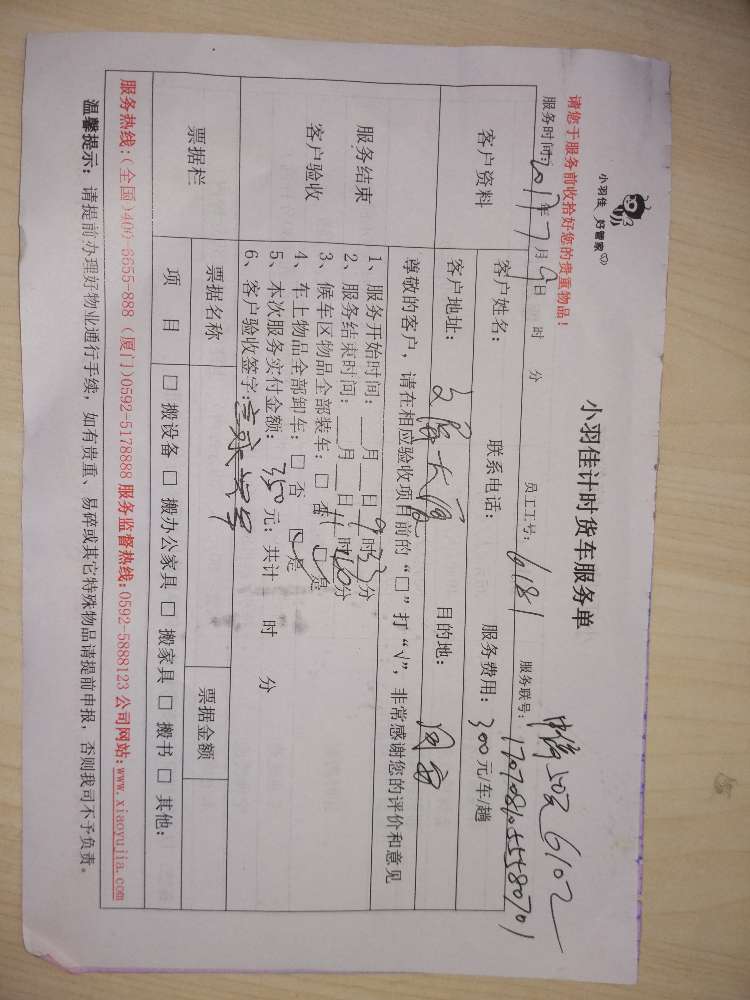 小羽佳 好管家
小羽佳计时货车服务单
请您于服务前收拾好您的贵重物品！
服务时间:2017年7月9日 时 分 员工工号: 6181 服务联号: 1707081055580701
客户资料
客户姓名: 联系电话: 服务费用: 300元/车/趟
客户地址: 目的地:
尊敬的客户，请在相应验收项目前的“□”打“√”，非常感谢您的评价和意见
服务结束
客户验收
1、服务开始时间: __月__日9时33分
2、服务结束时间: __月__日11时20分
3、候车区物品全部装车: □ 否 □ 是
4、车上物品全部卸车: □ 否 □ 是
5、本次服务实付金额: 350元; 共计 时 分
6、客户验收签字:
票据栏 票据名称 票据金额
项 目 □ 搬设备 □ 搬办公家具 □ 搬家具 □ 搬书 □ 其他:
服务热线:(全国)400-6655-888 (厦门)0592-5178888 服务监督热线:0592-5888123 公司网站:www.xiaoyujia.com
温馨提示: 请提前办理好物业通行手续，如有贵重、易碎或其它特殊物品请提前申报，否则我司不予负责。